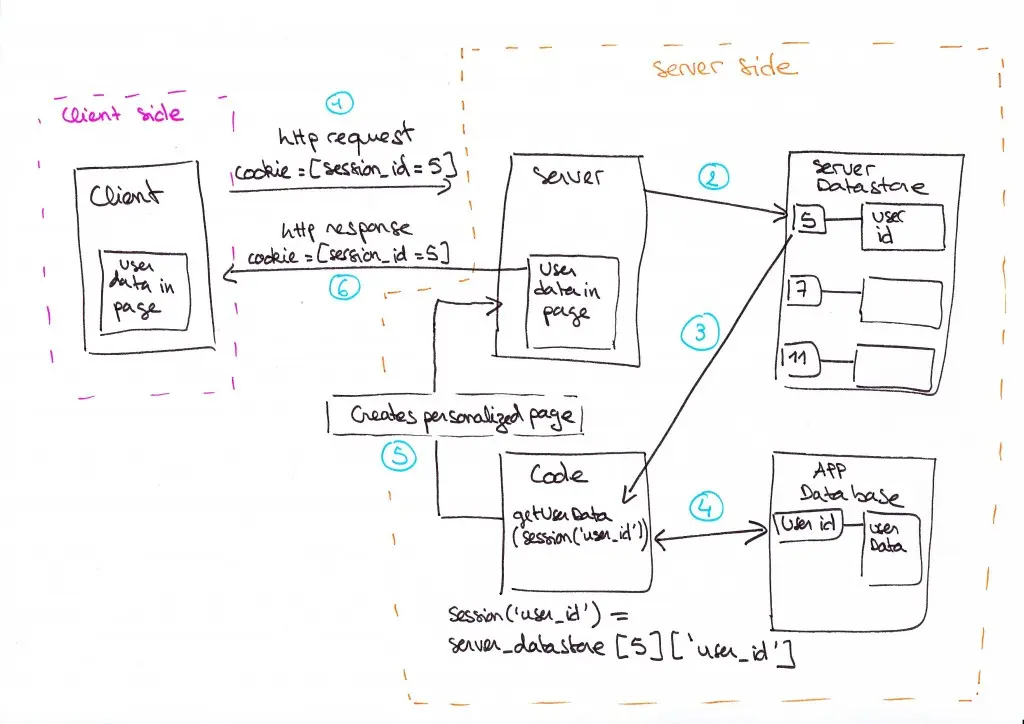 Server side
Client side
1
http request
cookie = [session_id = 5]
http response
cookie = [session_id = 5]
6
Client
User
data in
page
Server
User
data in
page
2
Server
Datastore
5
User
id
7
11
3
Creates personalized page
5
Code
getUserData
(session('user_id'))
4
APP
Database
User id
user
Data
session('user_id') =
server_datastore [5] ['user_id']